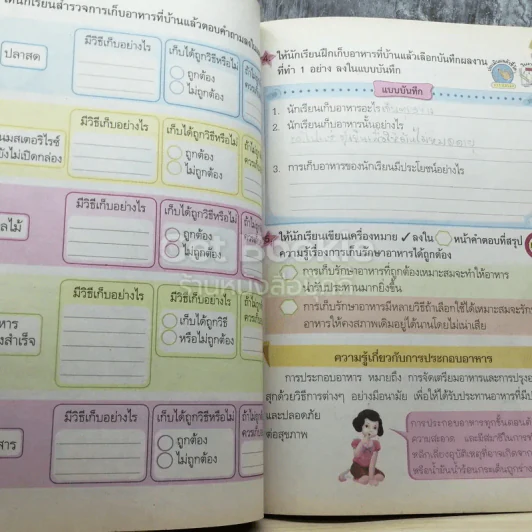 ให้นักเรียนสำรวจการเก็บอาหารที่บ้านแล้วตอบคำถามลงใน
ปลาสด
มีวิธีเก็บอย่างไร
เก็บได้ถูกวิธีหรือไม่
ถูกต้อง
ไม่ถูกต้อง
นมสเตอริไรซ์
ยังไม่เปิดกล่อง
มีวิธีเก็บอย่างไร
เก็บได้ถูกวิธีหรือไม่
ถูกต้อง
ไม่ถูกต้อง
ผลไม้
มีวิธีเก็บอย่างไร
เก็บได้ถูกวิธีหรือไม่
ถูกต้อง
ไม่ถูกต้อง
อาหาร
มีวิธีเก็บอย่างไร
เก็บได้ถูกวิธี
หรือไม่ถูกต้อง
มีวิธีเก็บอย่างไร
เก็บได้ถูกวิธีหรือไม่
ถูกต้อง
ไม่ถูกต้อง
ให้นักเรียนฝึกเก็บอาหารที่บ้านแล้วเลือกบันทึกผลงาน
ที่ทำ 1 อย่าง ลงในแบบบันทึก
แบบบันทึก
1. นักเรียนเก็บอาหารอะไร
2. นักเรียนเก็บอาหารนั้นอย่างไร
3. การเก็บอาหารของนักเรียนมีประโยชน์อย่างไร
ให้นักเรียนเขียนเครื่องหมาย ✓ ลงใน หน้าคำตอบที่สรุป
ความรู้เรื่องการเก็บรักษาอาหารได้ถูกต้อง
การเก็บรักษาอาหารที่ถูกต้องเหมาะสมจะทำให้อาหาร
น่ารับประทานมากยิ่งขึ้น
การเก็บรักษาอาหารมีหลายวิธีถ้าเลือกใช้ได้เหมาะสมจะรัก
อาหารให้คงสภาพเดิมอยู่ได้นานโดยไม่เน่าเสีย
ความรู้เกี่ยวกับการประกอบอาหาร
การประกอบอาหาร หมายถึง การจัดเตรียมอาหารและการปรุงอา
สุกด้วยวิธีการต่างๆ อย่างมีอนามัย เพื่อให้ได้รับประทานอาหารที่มีป
และปลอดภัย
ต่อสุขภาพ
การประกอบอาหารทุกขั้นตอนต้
ความสะอาด และมีสมาธิในการทำ
หลีกเลี่ยงอุบัติเหตุที่อาจเกิดจาก
หรือน้ำมันน้ำร้อนกระเด็นถูกร่าง
ร้านหนังสือ